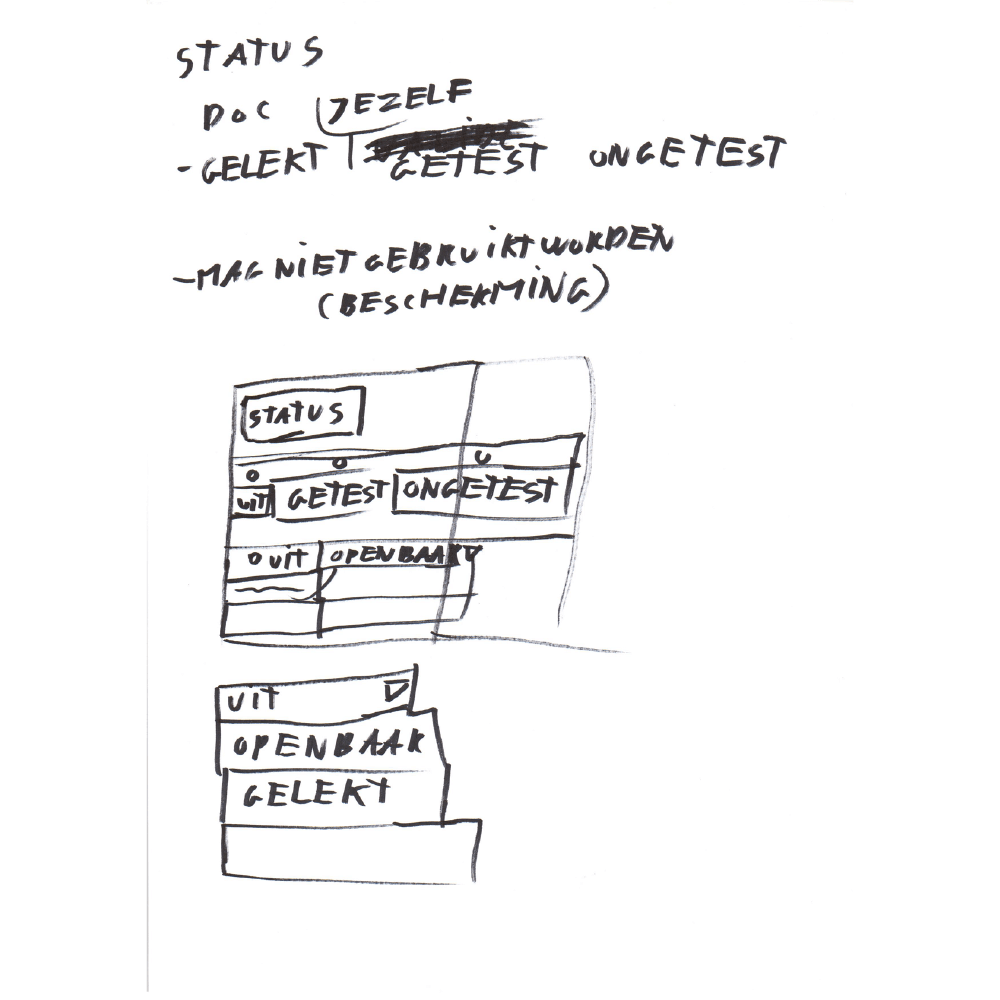 STATUS
DOC JEZELF
-GELEKT GETEST ONGETEST
-MAG NIET GEBRUIKT WORDEN
(BESCHERMING)
STATUS
UIT GETEST ONGETEST
UIT OPENBAAR
UIT
OPENBAAR
GELEKT